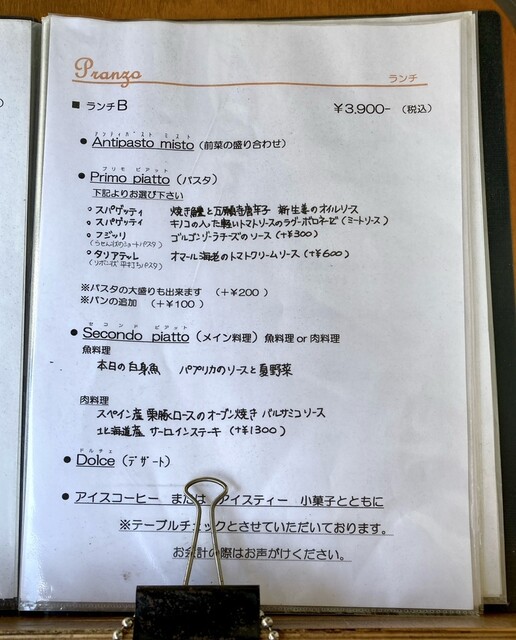 Pranzo
ランチ
■ ランチB ￥3,900-（税込）
アンティパスト ミスト
● Antipasto misto（前菜の盛り合わせ）
プリモ ピアット
● Primo piatto（パスタ）
下記よりお選び下さい
○ スパゲッティ 焼き鱧と万願寺唐辛子 新生姜のオイルソース
○ スパゲッティ キノコの入った軽いトマトソースのラグーボロネーゼ（ミートソース）
○ フジッリ ゴルゴンゾーラチーズのソース（+￥300）
（らせん状のショートパスタ）
○ タリアテッレ オマール海老のトマトクリームソース（+￥600）
（リボン状 平打ちパスタ）
※パスタの大盛りも出来ます （+￥200 ）
※パンの追加 （+￥100 ）
セコンド ピアット
● Secondo piatto（メイン料理）魚料理 or 肉料理
魚料理
本日の白身魚 パプリカのソースと夏野菜
肉料理
スペイン産 栗豚ロースのオーブン焼き バルサミコソース
北海道産 サーロインステーキ（+￥1300）
ドルチェ
● Dolce（デザート）
● アイスコーヒー または アイスティー 小菓子とともに
※テーブルチェックとさせていただいております。
お会計の際はお声がけください。